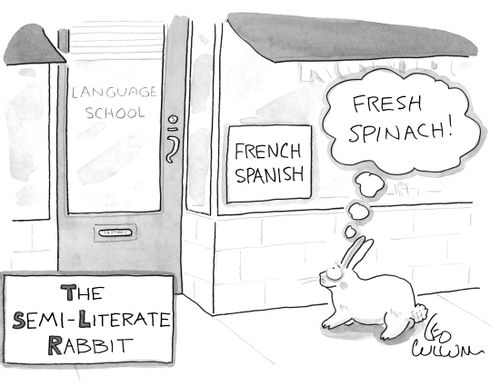 LANGUAGE
SCHOOL
FRENCH
SPANISH
FRESH
SPINACH!
THE
SEMI-LITERATE
RABBIT
LEO
CULLUM